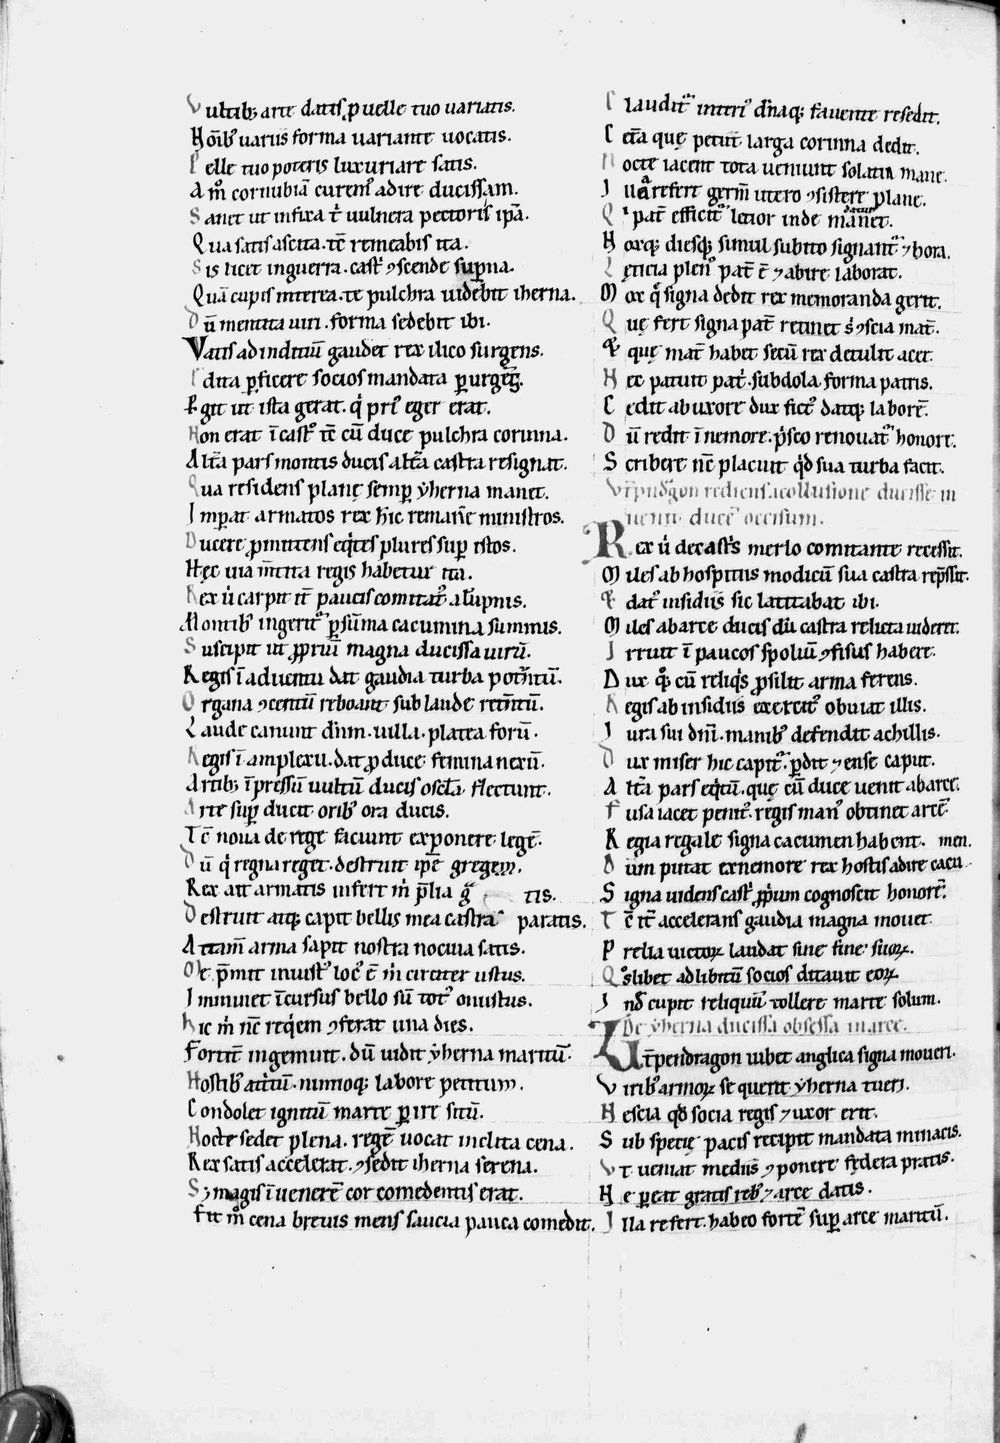 Vultib; arte datis ꝓ uelle tuo uariatis.
Hoı̄b' uariis forma uariante uocatis.
Velle tuo poteris luxuriare satis.
Am̊ cornubiā curren' adire ducissam.
Sanet ut infixa t̄ uulnera pectoris ipā.
Qua satis ascita. tc̄ remeabis ita.
Sis licet inguerra. castˢ ꝯscende sup̄na.
Quā cupis interea. te pulchra uidebit iherna.
Dū mentita uiri. forma sedebit ibi.
Vatis ad inditiū gaudet rex ilico surgens.
Edita ꝑficere socios mandata ꝑurgens.
Egit ut ista gerat. q̇ pri' eger erat.
Non erat ī castˢ tc̄ cū duce pulchra corinna.
Altā pars montis ducis altā castra resignat.
Qua residens planę semꝑ ẏherna manet.
Imꝑat armatos rex hic remanē ministros.
Ducere ꝓmittens eq̇tes plures suꝑ istos.
Hęc uia m̄tita regis habetur ita.
Rex u̇ carpit it̄ paucis comitatˢ alūpnis.
Montib' ingeritˢ ꝑ sūma cacumina summis.
Suscipit ut ꝓpriū magna ducissa uirū.
Regis ī aduentu dat gaudia turba potentū.
Organa ꝯcentū reboant sub laude retentū.
Laude canunt dn̄m. uilla. platea forū.
Regis ī amplexu. dat ꝓ duce femina nexū.
Artib; īpressū uultū ducis oscla flectunt.
Arte suꝑ ducit orib' ora ducis.
Tc̄ noua de rege faciunt exponere legē.
Dū q̇ regna reget. destruit ip̄e gregem.
Rex ait armatis infert m̄ p̄lia g̃tis.
Destruit atq; capit bellis mea castra paratis.
Attam̄ arma sapit nostra nociua satis.
Me p̄mit inuistˢ loc' ē m̄ circiter ustus.
Imminet īcursus bello sū tot' onustus.
Hic m̄ nc̄ req̇em ꝯferat una dies.
Fortit̄ ingemuit. dū uidit ẏherna maritū.
Hostib' attritū. nimioq; labore petitum.
Condolet ignitū marte ꝑire sitū.
Nocte sedet plena. regē uocat inclita cena.
Rex satis accelerat. ꝯsedit iherna serena.
S; magis ī uenerē cor comedentis erat.
Fit m̊ cena breuis mens saucia pauca comedit.
Clauditˢ interi' dn̄aq; fauente resedit.
Cetā quę petiit larga corinna dedit.
Nocte iacent tota ueniunt solatia mane.
Illa refert germ̄ utero ꝯsistere plane.
Qi pat̄ efficitˢ letior inde manet.
datur
Horq; diesq; simul subito signantˢ ⁊ hora.
Lęticia plen' pat̄ ē ⁊ abire laborat.
Mox q̊ signa dedit rex memoranda gerit.
Quę fert signa pat̄ retinet s; ꝯscia mat̄.
Et quę mat̄ habet secū rex detulit acer.
Hec patuit pat̄. subdola forma patris.
Cedit ab uxore dux fict' datq; laborē.
Dū redit ī nemore. p̊sco renouatˢ honore.
Scribere nc̄ placuit q̊d sua turba facit.
Vt̄pndg̊on rediens a collusione ducisse in
uenit duce' occisum.
Rex u̇ de castˢ merlo comitante recessit.
Miles ab hospitiis modicū sua castra rep̄ssit.
Et datˢ insidiis sic latitabat ibi.
Miles ab arce ducis dū castra relicta uideret.
Irruit ī paucos spoliū ꝯfisus habere.
Dux q̊ cū reliq̇s ꝓsilit arma ferens.
Regis ab insidiis exercit' obuiat illis.
Iura sui dn̄i. manib' defendit achillis.
Dux miser hic capitˢ. ꝑdit ⁊ ense caput.
Altā pars eq̇tū. quę cū duce uenit ab arce.
Fusa iacet penit'. regis man' obtinet arcē.
Regia regale signa cacumen habent.
Dum putat ex nemore rex hostis adire cacu
men.
Signa uidens castˢ ꝓpium cognoscit honorē.
Tc̄ it̄ accelerans gaudia magna mouet.
Prelia uictoꝝ laudat sine fine suoꝝ.
Q̊slibet ad libitū socios ditauit eoꝝ.
Inď cupit reliquiū tollere marte solum.
De ẏherna ducissa obsessa in arce.
Ut̄pendragon iubet anglica signa moueri.
Virib' armoꝝ se querit ẏherna tueri.
Nescia qđ socia regis ⁊ uxor erit.
Sub specię pacis recipit mandata minacis.
Vt ueniat mediis ꝯponere fędera pratis.
Ne ꝑeat gratis reb' ⁊ arce datis.
Illa refert. habeo fortē suꝑ arce maritū.